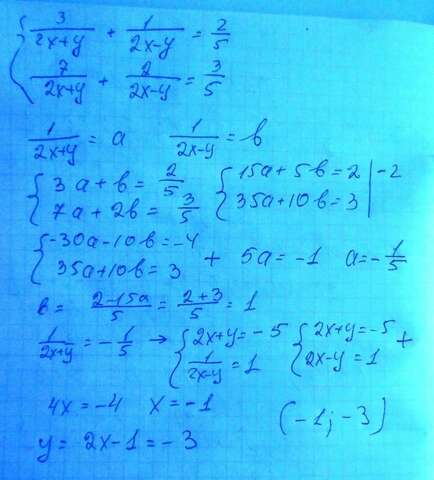 { 3/(2x+y) + 1/(2x-y) = 2/5
7/(2x+y) + 2/(2x-y) = 3/5
1/(2x+y) = a 1/(2x-y) = b
{ 3a + b = 2/5 { 15a + 5b = 2 | -2
7a + 2b = 3/5 35a + 10b = 3 |
{ -30a - 10b = -4
35a + 10b = 3 + 5a = -1 a = -1/5
b = (2-15a)/5 = (2+3)/5 = 1
1/(2x+y) = -1/5 → { 2x+y = -5 { 2x+y = -5 +
1/(2x-y) = 1 2x-y = 1
4x = -4 x = -1 (-1; -3)
y = 2x-1 = -3